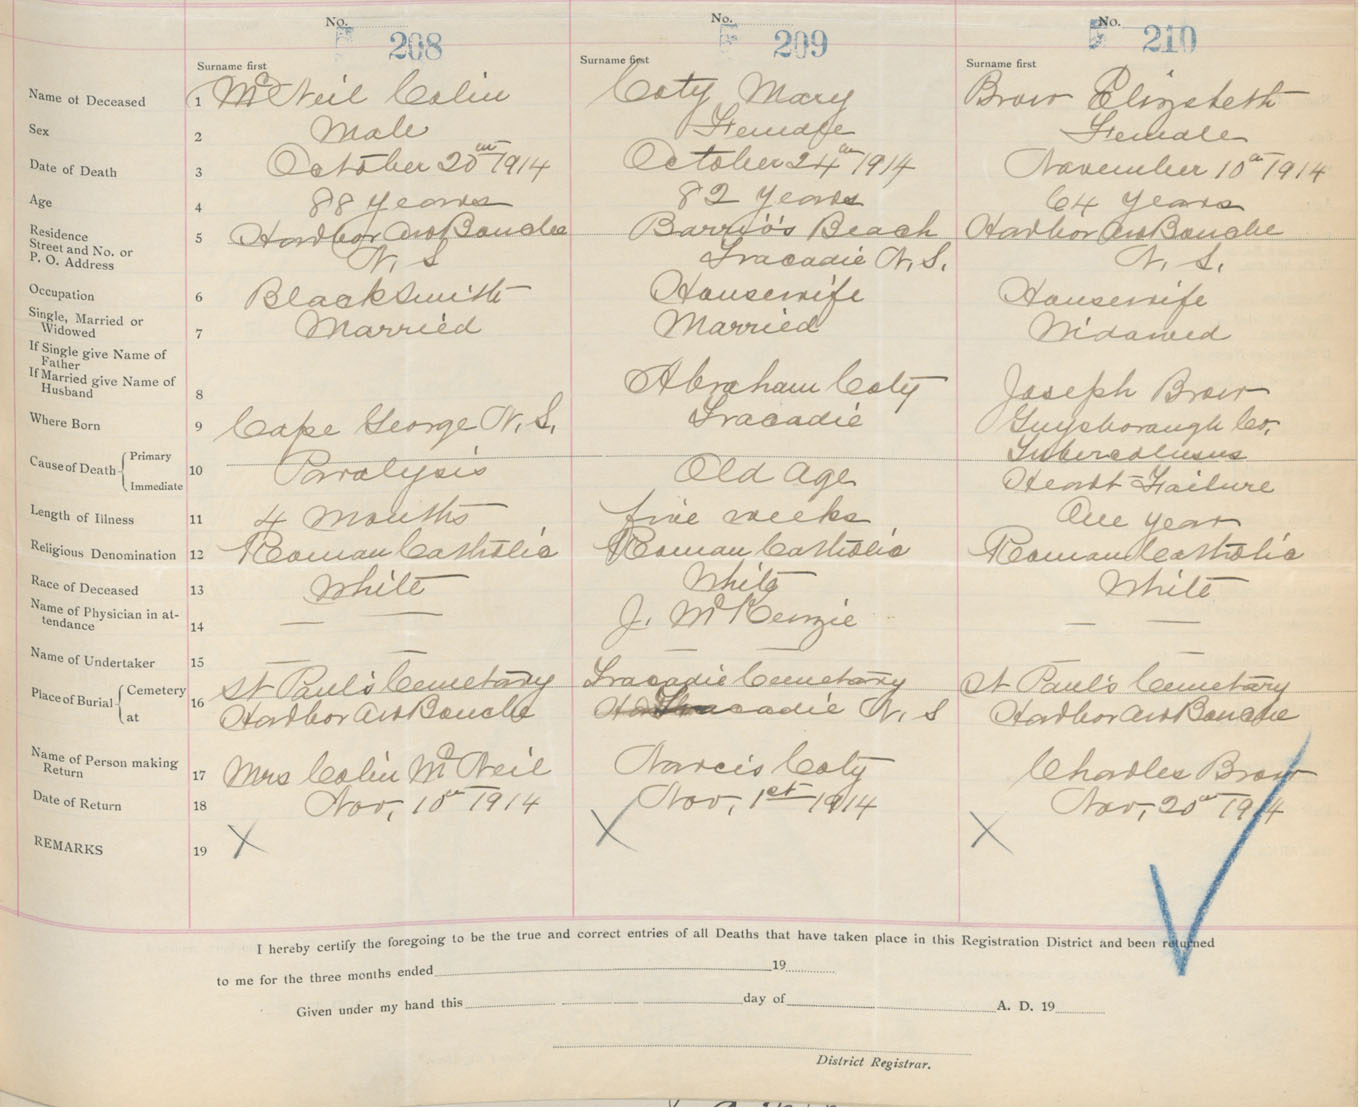 No. 208 No. 209 No. 210
Surname first Surname first Surname first
Name of Deceased 1 McNeil Colin Coty Mary Brow Elizabeth
Sex 2 Male Female Female
Date of Death 3 October 20th 1914 October 24th 1914 November 10th 1914
Age 4 88 years 82 years 64 years
Residence
Street and No. or
P. O. Address 5 Harbor Au Bouche Barrio's Beach Harbor Au Bouche
N. S Tracadie N. S. N. S.
Occupation 6 Blacksmith Housewife Housewife
Single, Married or
Widowed 7 Married Married Widowed
If Single give Name of
Father
If Married give Name of
Husband 8 Abraham Coty Joseph Brow
Where Born 9 Cape George N. S. Tracadie Guysborough Co.
Cause of Death Primary Tubercolusus
Immediate 10 Paralysis Old Age Heart Failure
Length of Illness 11 4 Months five weeks One year
Religious Denomination 12 Roman Catholic Roman Catholic Roman Catholic
Race of Deceased 13 White White White
Name of Physician in at-
tendance 14 — — J. McKenzie — —
Name of Undertaker 15 — — — — — —
Place of Burial Cemetery St Paul's Cemetary Tracadie Cemetary St Paul's Cemetary
at 16 Harbor Au Bouche Tracadie N. S Harbor Au Bouche
Name of Person making
Return 17 Mrs Colin McNeil Narcis Coty Charles Brow
Date of Return 18 Nov, 10th 1914 Nov, 1st 1914 Nov, 20th 1914
REMARKS 19 X X X
I hereby certify the foregoing to be the true and correct entries of all Deaths that have taken place in this Registration District and been returned
to me for the three months ended 19
Given under my hand this day of A. D. 19
District Registrar.